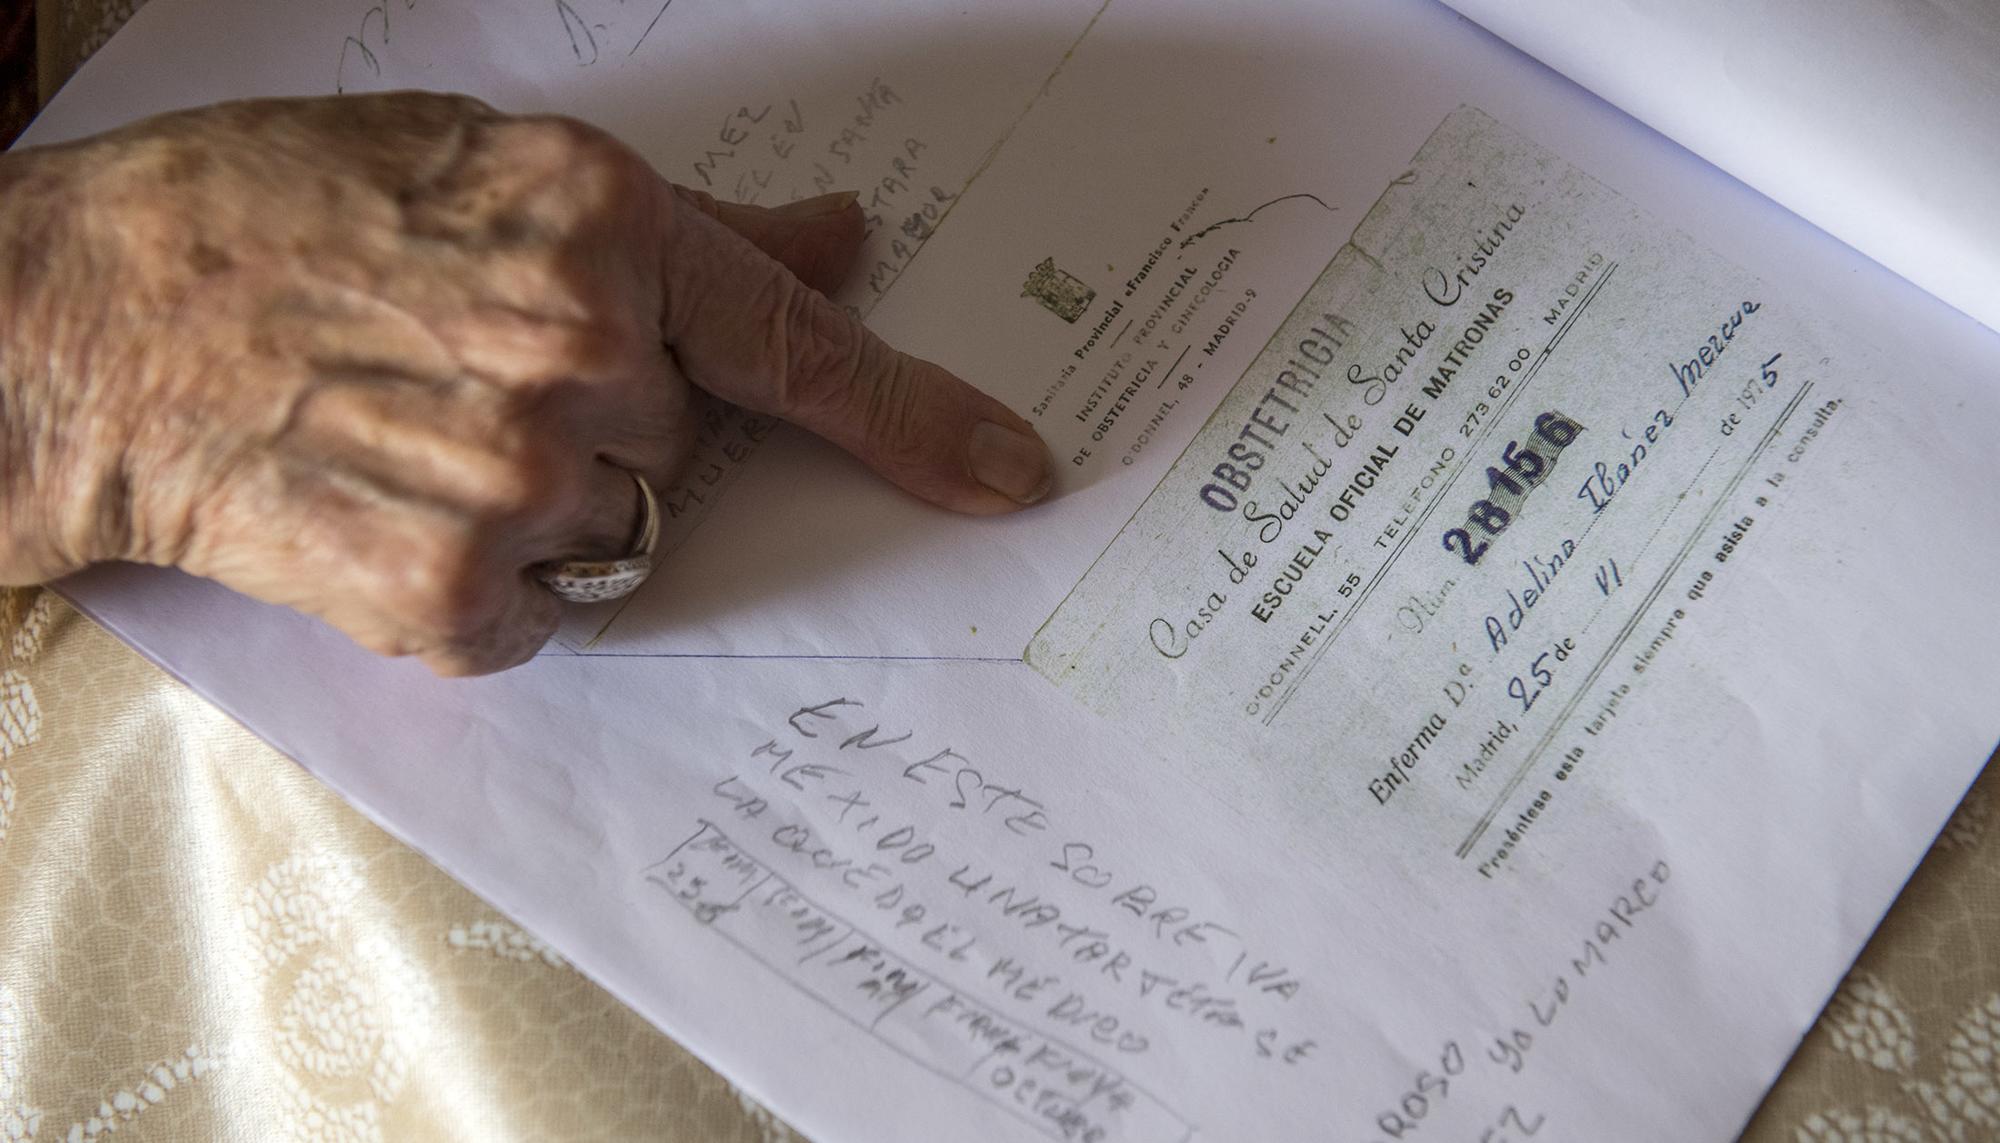 MEZ
EL EN
EN SANTA
STARA
MAYOR
MUER
Sanitaria Provincial «Francisco Franco»
INSTITUTO PROVINCIAL
DE OBSTETRICIA Y GINECOLOGIA
O'DONNELL, 48 - MADRID-9
OBSTETRIGIA
Casa de Salud de Santa Cristina
ESCUELA OFICIAL DE MATRONAS
O'DONNELL, 55 TELEFONO 273 62 00 MADRID
Núm 28156
Enferma D.ª Adelina Ibánez Mercue
Madrid, 25 de VI de 1975
Preséntese esta tarjeta siempre que asista a la consulta.
EN ESTE SOBRE IVA
METIDO UNA TARJETA SE
LA QUEDO EL MÉDICO
OCTUBRE
ROSO YO LO MARCO
EZ